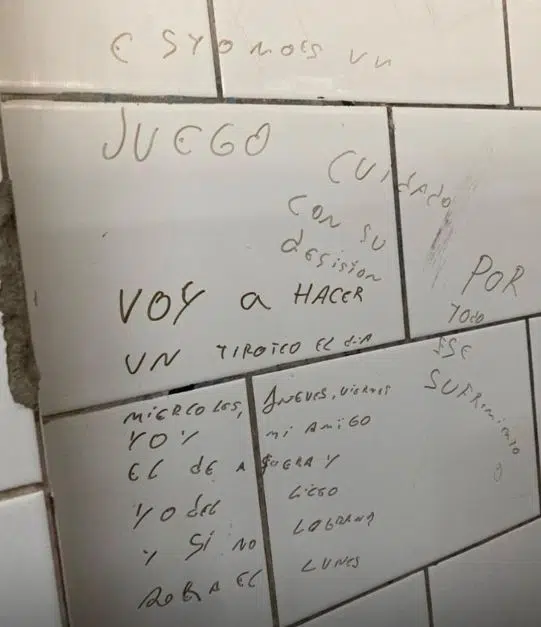 ESYO NO ES UN
JUEGO
CUIdADO
CON SU
dESISIÓN
VOY a HACER
UN TIROTEO EL dIA
MIERCOLES, JUEVES, VIERNES
YO Y MI AMIGO
EL dE AFUERA Y
YO dEL LICEO
Y SI NO
EL LUNES
POR
TOdO
ESE
SUFRIMIENTO